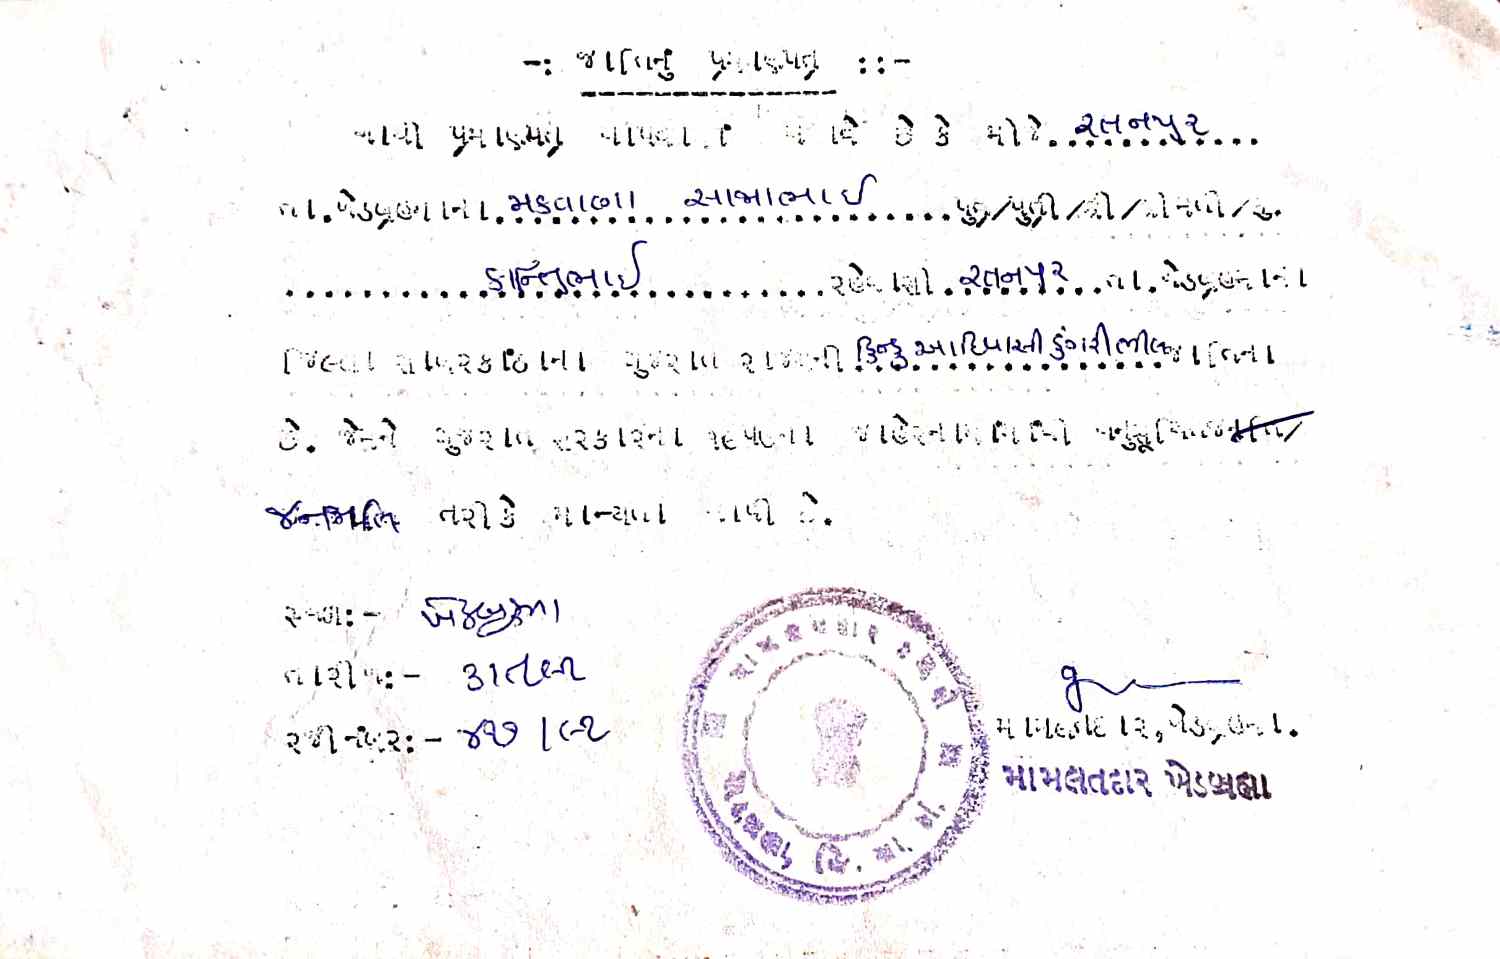 -: જાતિનું પ્રમાણપત્ર ::-
આથી પ્રમાણપત્ર આપવામાં આવે છે કે મોજે. રતનપુર
તા.ખેડબ્રહ્માના. મકવાણા સામાભાઈ પુત્ર/પુત્રી/શ્રી/શ્રીમતી/કુ.
કાન્તુભાઈ રહેવાસી. રતનપુર તા.ખેડબ્રહ્માના
જિલ્લા સાબરકાંઠાના ગુજરાત રાજ્યની હિન્દુ આદિવાસી ડુંગરી ભીલ જાતિના
છે. જેને ગુજરાત સરકારના ૧૯૫૦ના જાહેરનામાથી અનુસૂચિત
જનજાતિ તરીકે માન્યતા આપી છે.
સ્થળ:- ખેડબ્રહ્મા
તારીખ:-
રજી નંબર:-
મામલતદાર,ખેડબ્રહ્મા.
મામલતદાર ખેડબ્રહ્મા